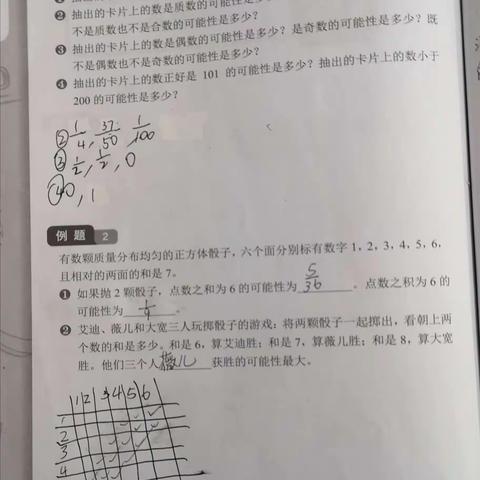 ❷ 抽出的卡片上的数是质数的可能性是多少?
不是质数也不是合数的可能性是多少?
❸ 抽出的卡片上的数是偶数的可能性是多少?是奇数的可能性是多少?既
不是偶数也不是奇数的可能性是多少?
❹ 抽出的卡片上的数正好是 101 的可能性是多少?抽出的卡片上的数小于
200 的可能性是多少?
② 1/4, 37/50, 1/100
③ 1/2, 1/2, 0
④ 0, 1
例题 2
有数颗质量分布均匀的正方体骰子,六个面分别标有数字 1,2,3,4,5,6,
且相对的两面的和是 7。
❶ 如果抛 2 颗骰子,点数之和为 6 的可能性为 5/36 。点数之积为 6 的
可能性为 1/9 。
❷ 艾迪、薇儿和大宽三人玩掷骰子的游戏:将两颗骰子一起掷出,看朝上两
个数的和是多少。和是 6,算艾迪胜;和是 7,算薇儿胜;和是 8,算大宽
胜。他们三个人 薇儿 获胜的可能性最大。
1 2 3 4 5 6
1
2
3
4